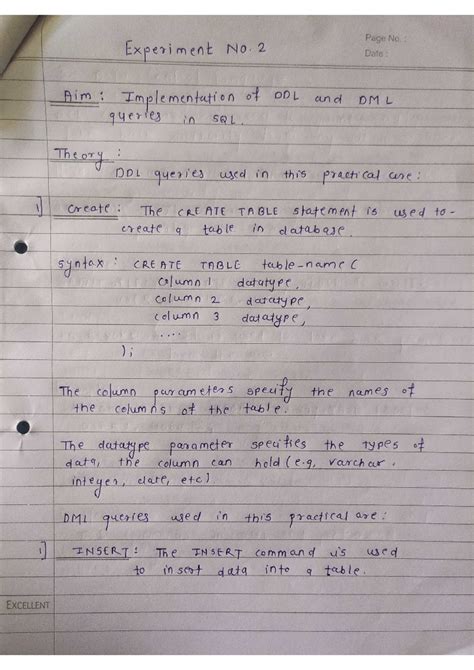 Page No. :
Date :
Experiment No. 2
Aim : Implementation of DDL and DML
queries in SQL.
Theory :
DDL queries used in this practical are :
1] Create : The CREATE TABLE statement is used to-
create a table in database.
Syntax : CREATE TABLE table-name (
column 1 datatype,
column 2 datatype,
column 3 datatype,
....
);
The column parameters specify the names of
the columns of the table.
The datatype parameter specifies the types of
data, the column can hold (e.g, varchar,
integer, date, etc)
DML queries used in this practical are :
1] INSERT : The INSERT command is used
to insert data into a table.
EXCELLENT